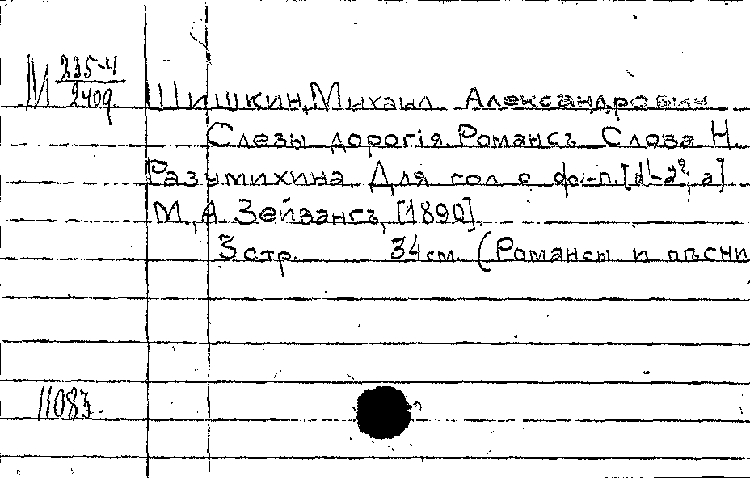 М 235-4
2409.
Шишкин, Михаил Александрович
Слезы дорогія. Романсъ. Слова Н.
Разумихина. Для гол. с ф.-п. [d¹-a², a]
М., А. Зейвангъ, [1890].
3 стр. 34 см. (Романсы и пѣсни
11083.